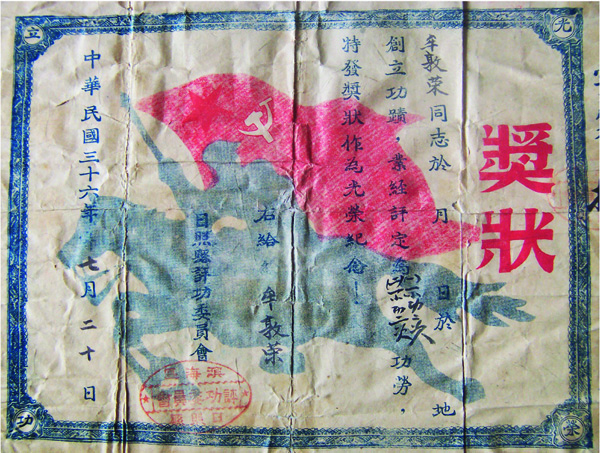 光
立
功
獎狀
牟敦荣同志於 月 日於 地
創立功蹟,業經評定為 功勞,
特發獎狀作為光榮紀念!
右給 牟敦荣
日照縣評功委員會
中華民國三十六年 七月二十日
濱海區
評功委員會
日照縣